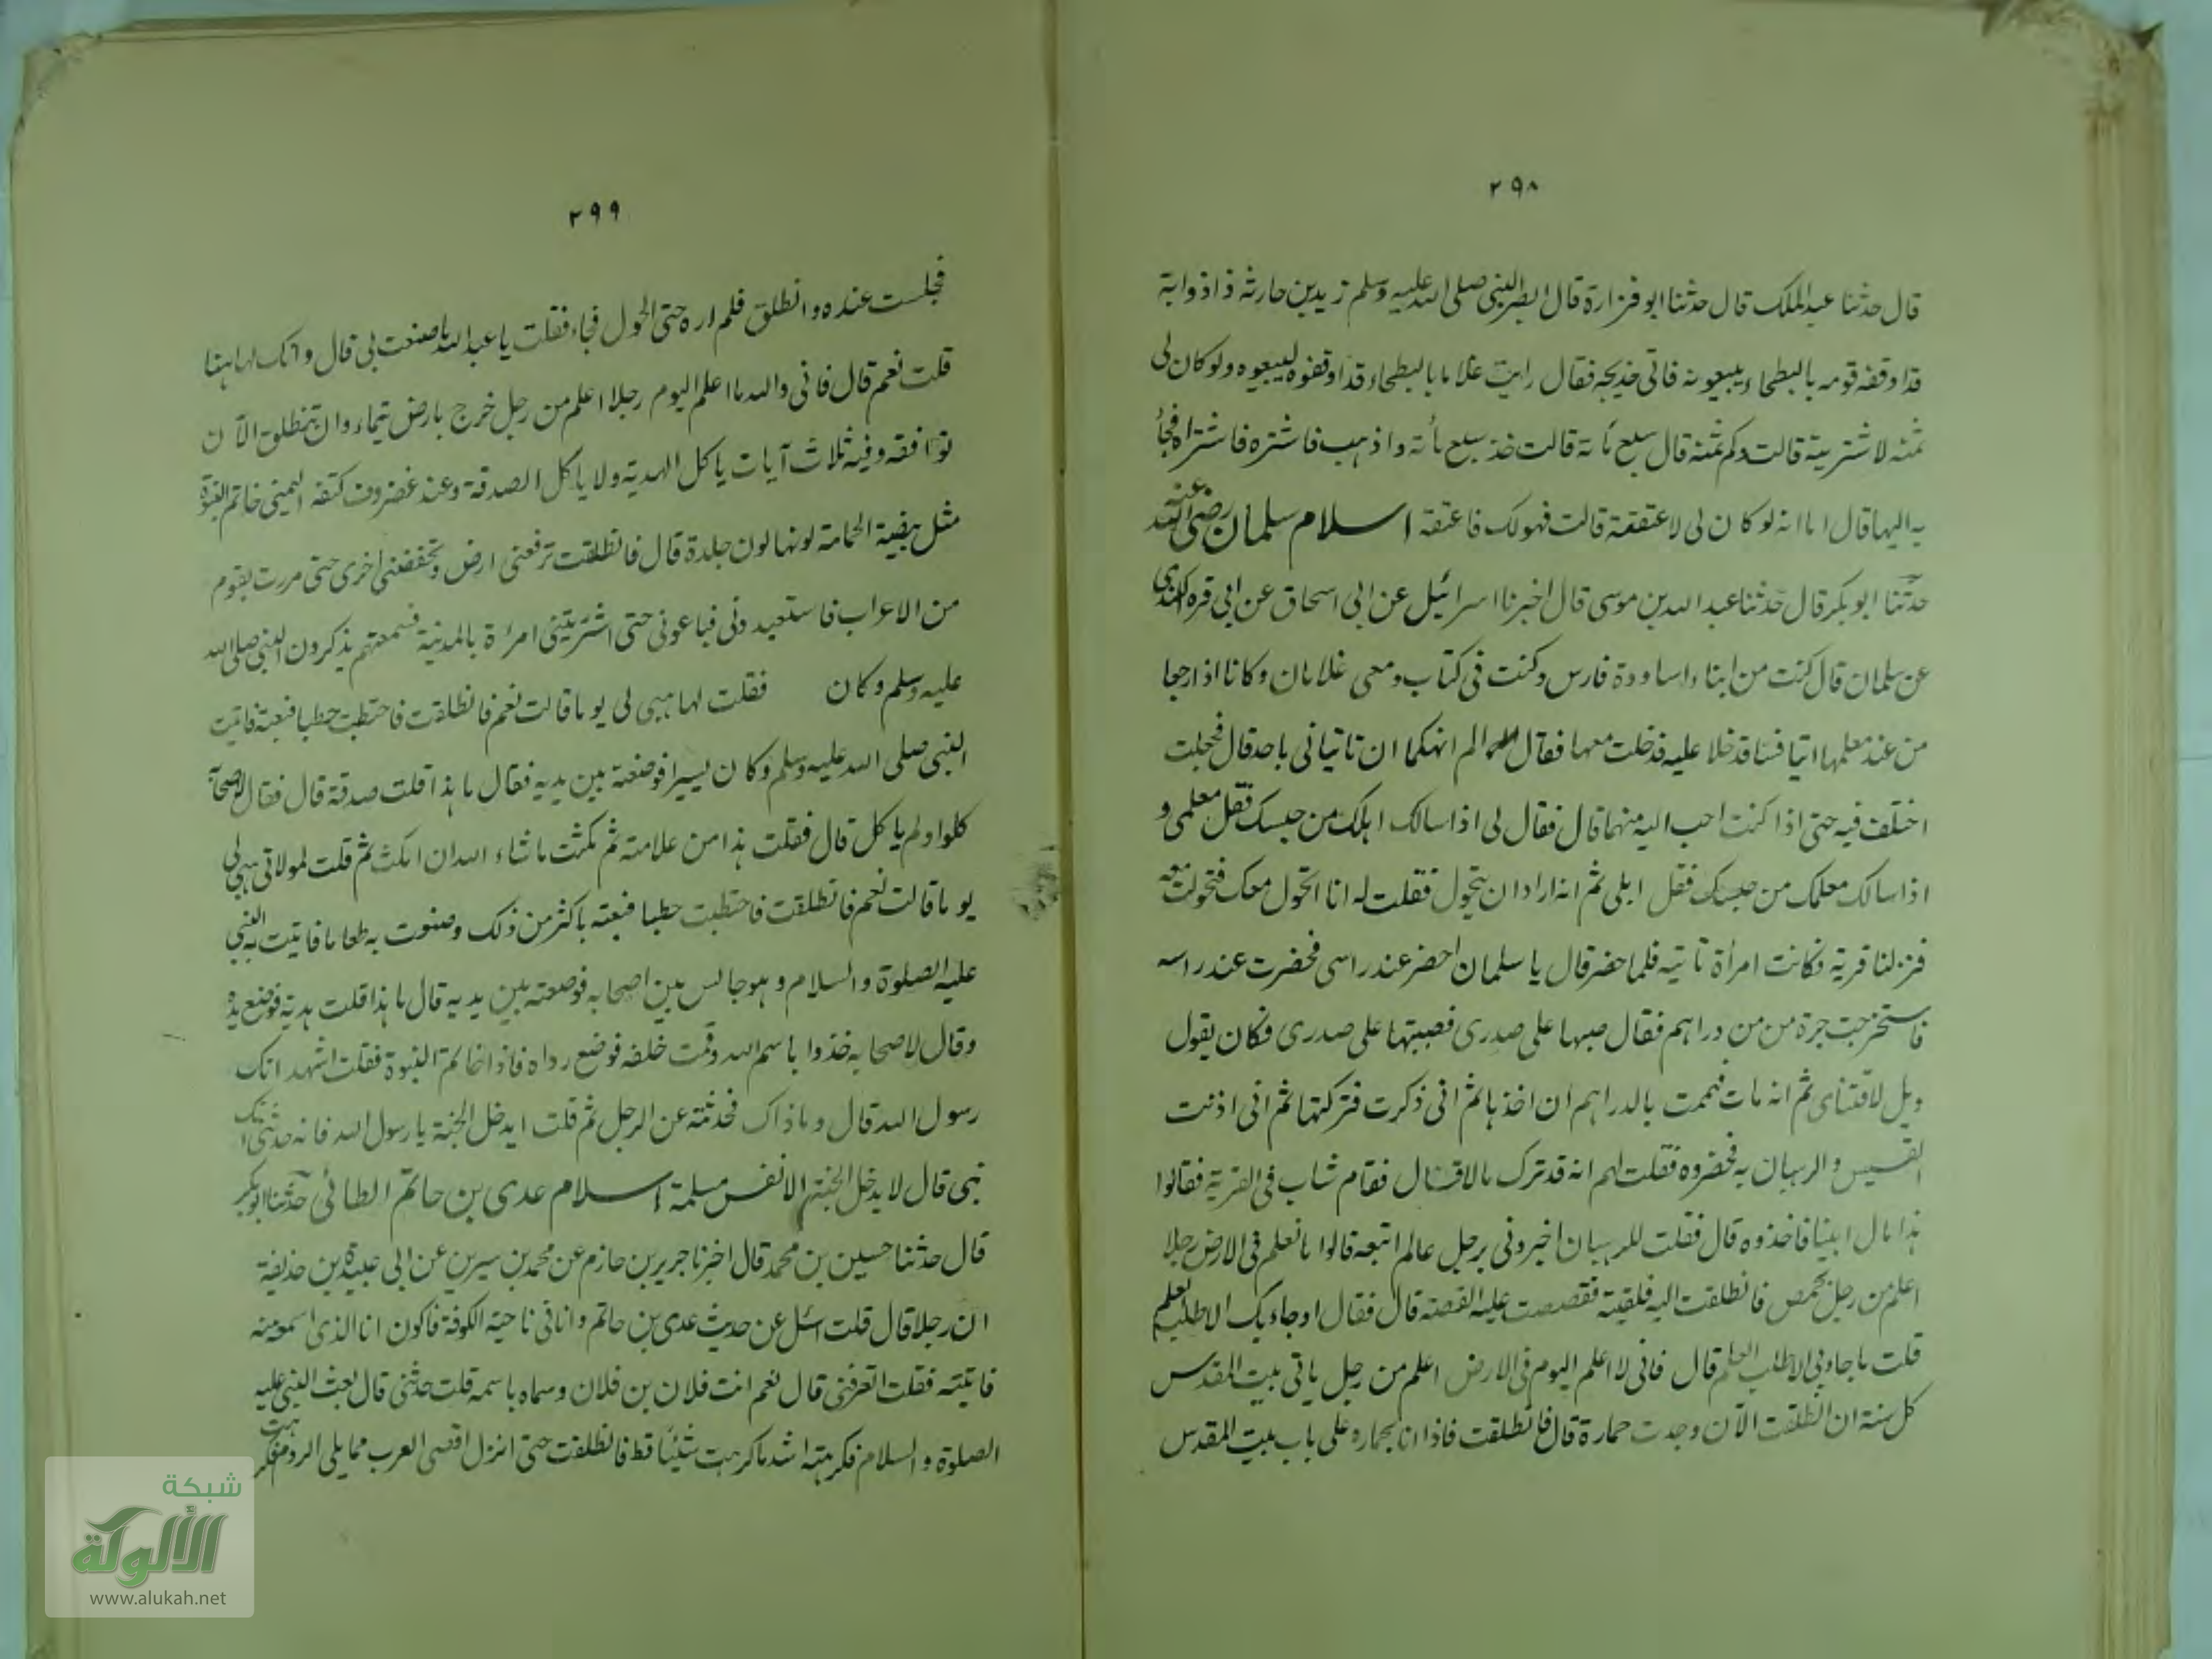 ٢٩٨
قال حدثنا عبد الملك قال حدثنا ابو فزارة قال ابصر النبى صلى الله عليه وسلم زيد بن حارثه ذا ذوابة
قد اوقفه قومه بالبطحاء يبيعونه فاتى خديجه فقال رايت غلاما بالبطحاء قد اوقفوه ليبيعوه ولو كان لى
ثمنه لاشتريته قالت وكم ثمنه قال سبع مأة قالت خذ سبع مأته واذهب فاشتره فاشتراه فجأ
به اليها قال اما انه لو كان لى لاعتقته قالت فهو لك فاعتقه اسلام سلمان رضى الله عنه
حدثنا ابو بكر قال حدثنا عبد الله بن موسى قال اخبرنا اسرائيل عن ابى اسحاق عن ابى قره الكندى
عن سلمان قال كنت من ابناء اساودة فارس وكنت فى كتاب ومعى غلامان وكانا اذا رجعا
من عند معلمهما اتيا قسا قد خلا عليه فدخلت معهما فقال لهما الم انهكما ان تاتيانى باحد قال فجعلت
اختلف فيه حتى اذا كنت احب اليه منهما قال فقال لى اذا سالك اهلك من حبسك فقل معلمى و
اذا سالك معلمك من حبسك فقل اهلى ثم انه اراد ان يتحول فقلت له انا اتحول معك فتحولت معه
فنزلنا قرية فكانت امرأة تاتيه فلما حضر قال يا سلمان احضر عند راسى فحضرت عند راسه
فاستخرجت جرة من من دراهم فقال صبها على صدرى فصببتها على صدرى فكان يقول
ويل لاقتناى ثم انه مات فهممت بالدراهم ان اخذها ثم انى ذكرت فتركتها ثم انى اذنت
القسيس والرهبان به فحضروه فقلت لهم انه قد ترك مالا قال فقام شاب فى القرية فقالوا
هذا مال ابينا فاخذوه قال فقلت للرهبان اخبرونى برجل عالم اتبعه قالوا ما نعلم فى الارض رجلا
اعلم من رجل بحمص فانطلقت اليه فلقيته فقصصت عليه القصة قال فقال او جاء بك الا طلب العلم
قلت ما جاء بى الا طلب العلم قال فانى لا اعلم اليوم فى الارض اعلم من رجل ياتى بيت المقدس
كل سنة ان انطلقت الآن وجدت حمارة قال فانطلقت فاذا انا بحماره على باب بيت المقدس
٢٩٩
فجلست عنده وانطلق فلم اره حتى الحول فجاء فقلت يا عبد الله ما صنعت بى قال وانك لها هنا
قلت نعم قال فانى والله ما اعلم اليوم رجلا اعلم من رجل خرج بارض تيماء وان تنطلق الآن
توافقه وفيه ثلاث آيات ياكل الهدية ولا ياكل الصدقة وعند غضروف كتفه اليمنى خاتم النبوة
مثل بيضة الحمامة لونها لون جلدة قال فانطلقت ترفعنى ارض وتخفضنى اخرى حتى مررت بقوم
من الاعراب فاستعيدونى فباعونى حتى اشتريتنى امرأة بالمدينة فسمعتهم يذكرون النبى صلى الله
عليه وسلم وكان فقلت لها هبى لى يوما قالت نعم فانطلقت فاحتطبت حطبا فبعته فاتيت
النبى صلى الله عليه وسلم وكان يسيرا فوضعته بين يديه فقال ما هذا قلت صدقة قال فقال لاصحابه
كلوا ولم ياكل قال فقلت هذا من علامته ثم مكثت ما شاء الله ان امكث ثم قلت لمولاتى هبى لى
يوما قالت نعم فانطلقت فاحتطبت حطبا فبعته باكثر من ذلك وصنعت به طعاما فاتيت به النبى
عليه الصلوة والسلام وهو جالس بين اصحابه فوضعته بين يديه قال ما هذا قلت هدية فوضع يده
وقال لاصحابه خذوا باسم الله وقمت خلفه فوضع رداه فاذا خاتم النبوة فقلت اشهد انك
رسول الله قال وما ذاك فحدثته عن الرجل ثم قلت ايدخل الجنة يا رسول الله فانه حدثنى انك
نبى قال لا يدخل الجنة الا نفس مسلمة اسلام عدى بن حاتم الطائى حدثنا ابو بكر
قال حدثنا حسين بن محمد قال اخبرنا جرير بن حازم عن محمد بن سيرين عن ابى عبيدة بن حذيفة
ان رجلا قال قلت اسئل عن حديث عدى بن حاتم وانا فى ناحية الكوفة فاكون انا الذى اسمعه منه
فاتيته فقلت اتعرفنى قال نعم انت فلان بن فلان وسماه باسمه قلت حدثنى قال بعث النبى عليه
الصلوة والسلام فكرهته اشد ما كرهت شيئا قط فانطلقت حتى انزل اقصى العرب مما يلى الروم فكرهت
شبكة
الألوكة
www.alukah.net